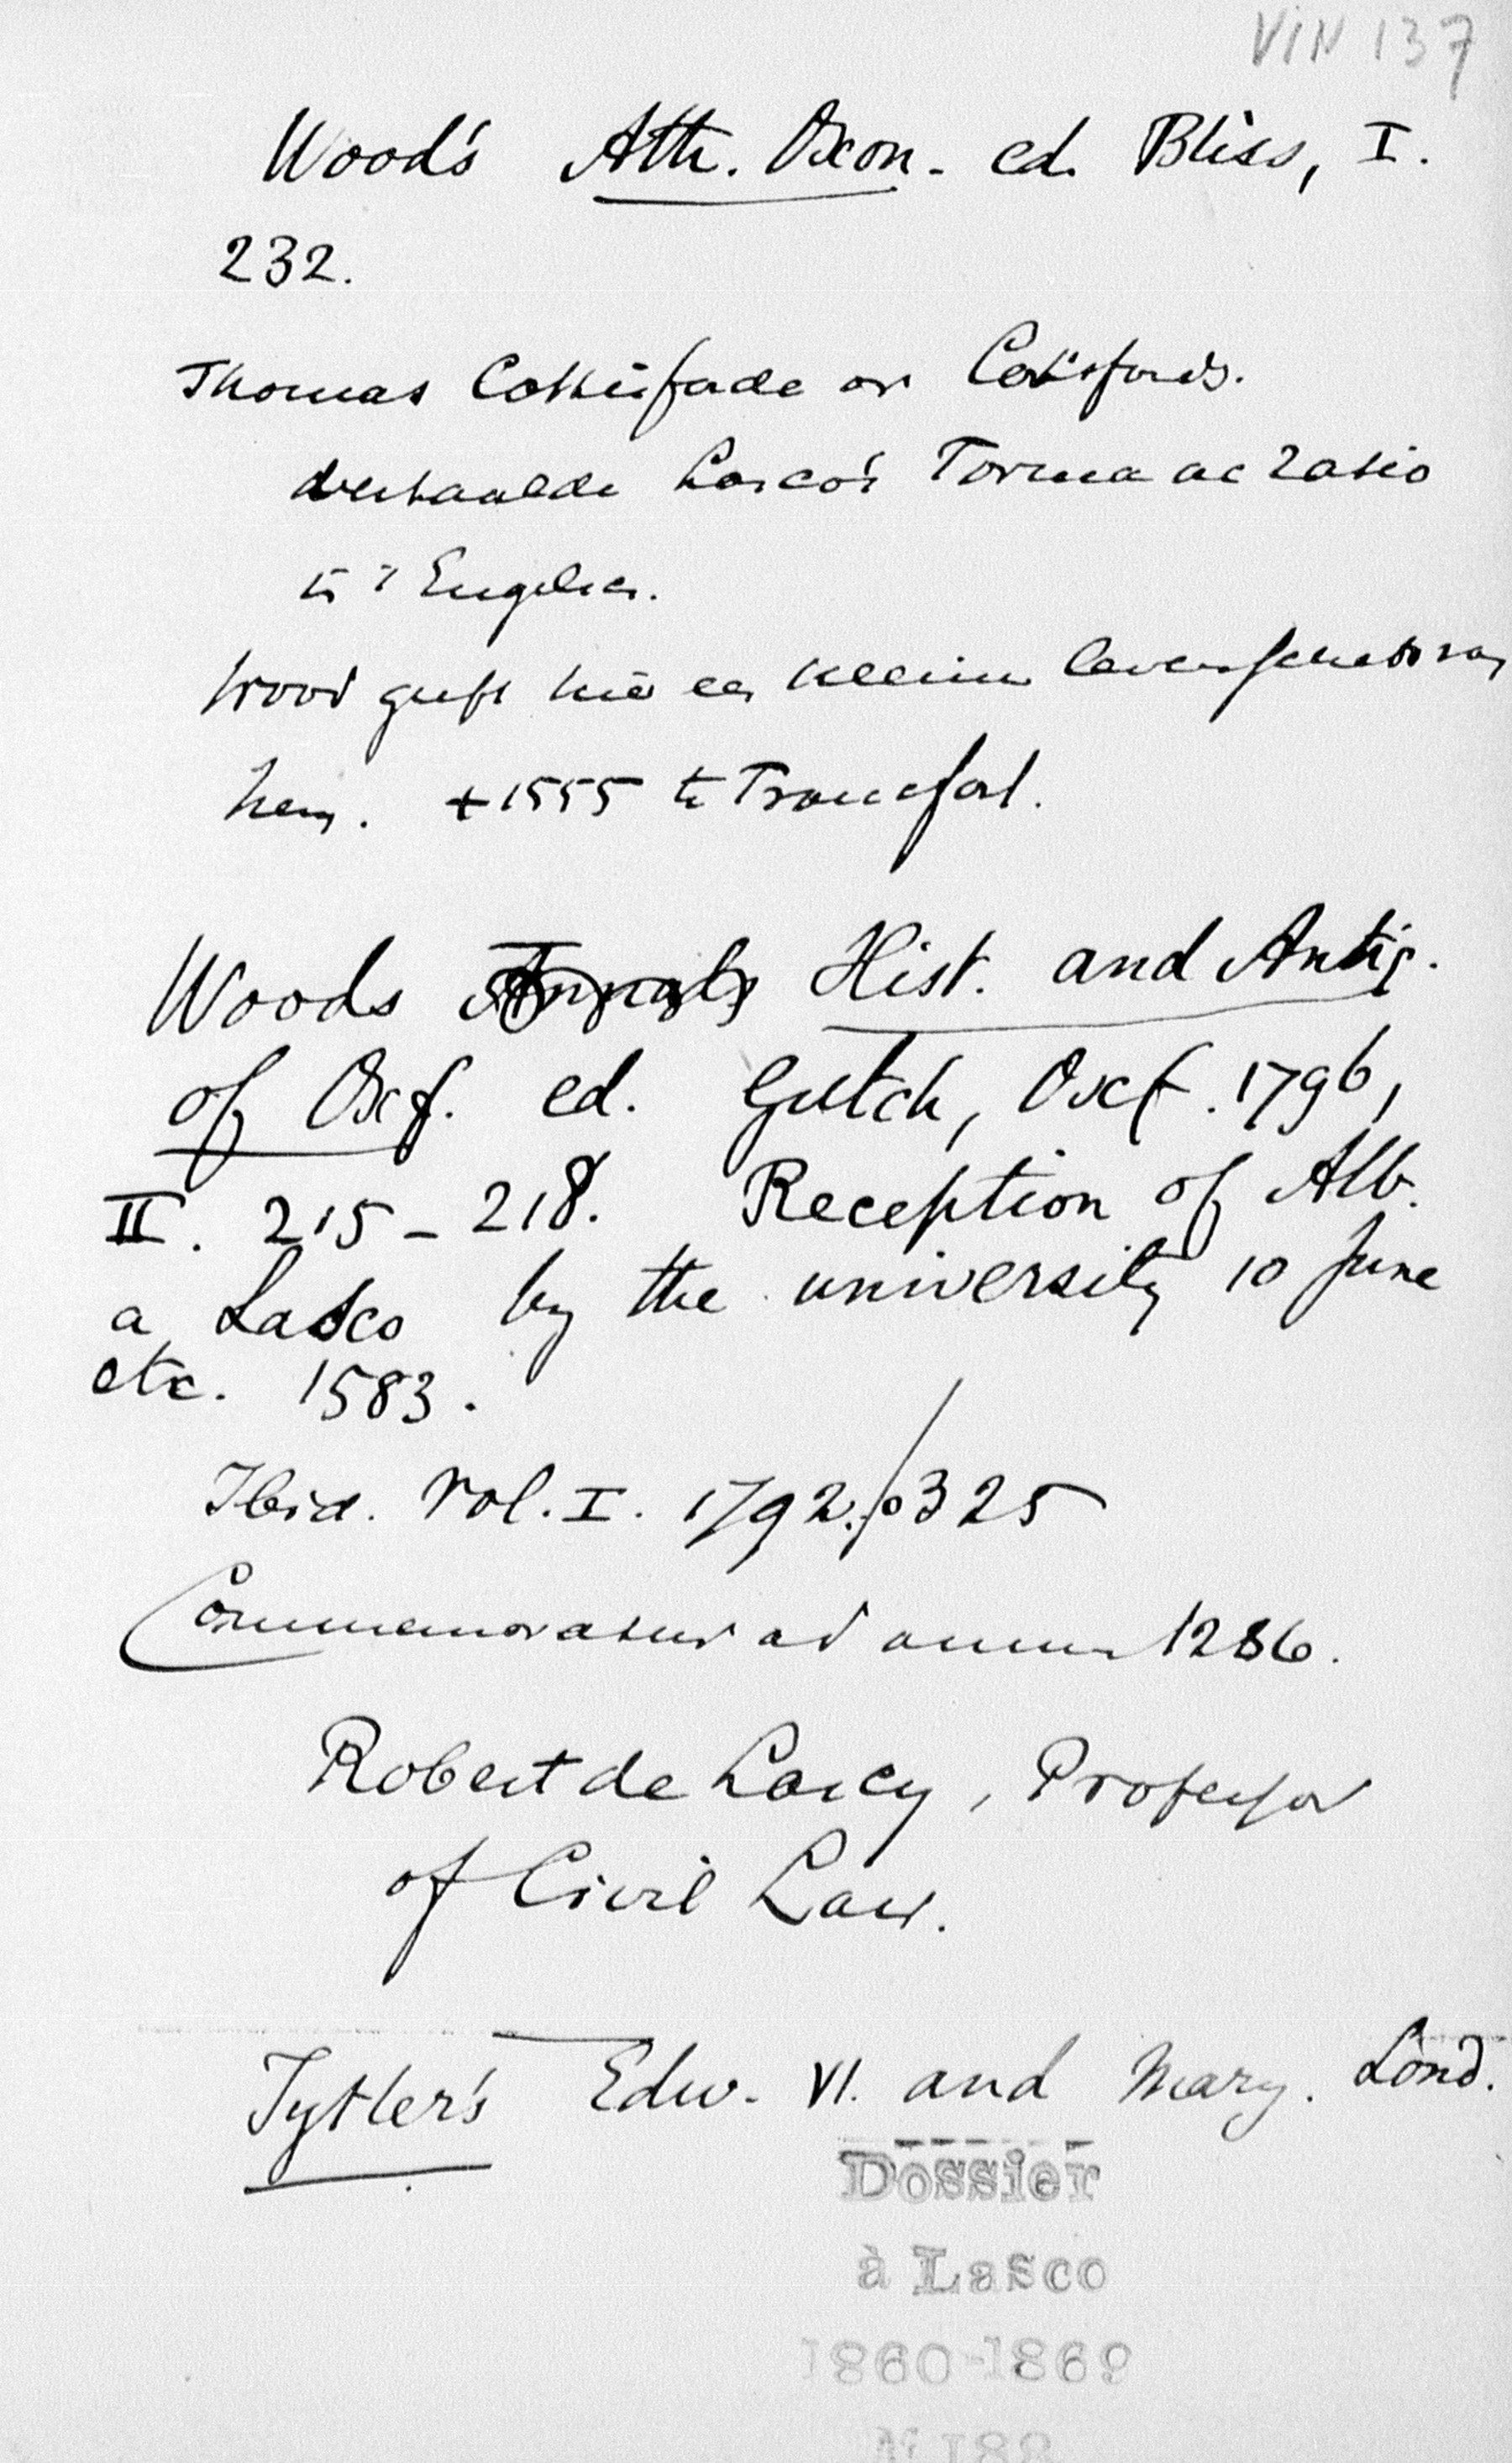 VIN 137
Wood's Ath. Oxon. ed. Bliss, I.
232.
Thomas Cottisforde or Cotisfords.
vertaalde Lasco's Forma ac ratio
in 't Engelsch.
Wood geeft hier een kleine levensschets van
hem. + 1555 te Francfort.
Woods Annals Hist. and Antiq.
of Oxf. ed. Gutch, Oxf. 1796,
II. 215 - 218. Reception of Alb.
a Lasco by the university 10 June
etc. 1583.
Ibid. Vol. I. 1792. p 325
Commemoratur ad annum 1286.
Robert de Lascy, Professor
of Civil Law.
Tytler's Edw. VI. and Mary. Lond.
Dossier
à Lasco
1860-1869
N 188